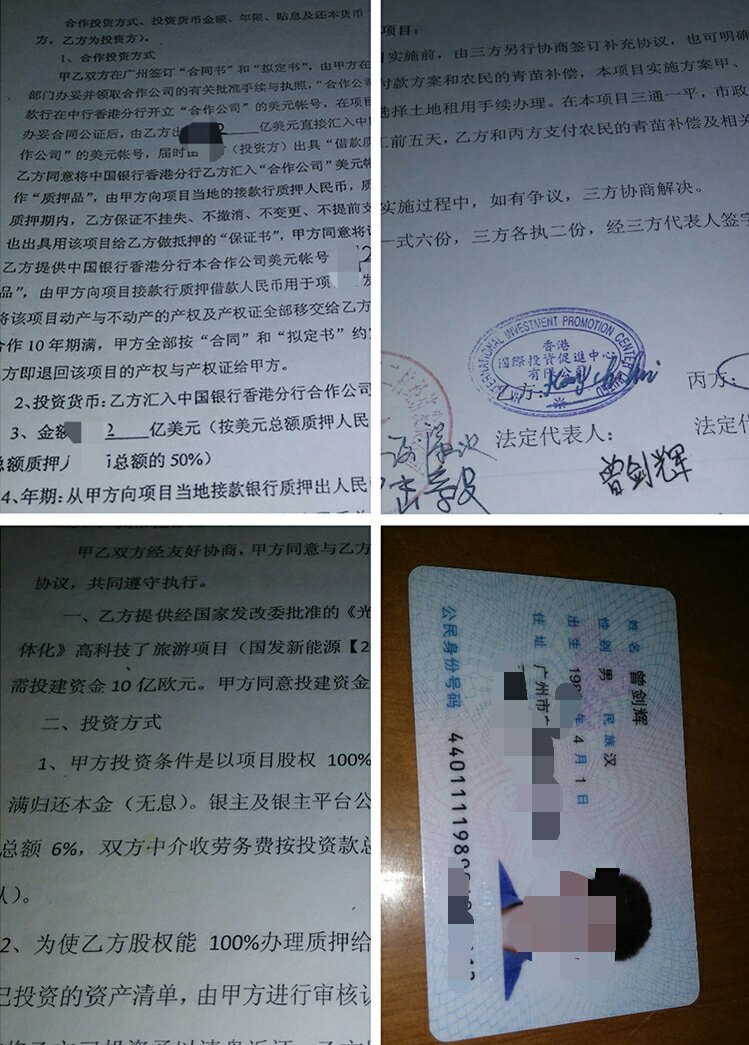 合作投资方式、投资货币金额、年限、贴息及还本货币
方，乙方为投资方）。
1、合作投资方式
甲乙双方在广州签订“合同书”和“拟定书”，由甲方在
部门办妥并领取合作公司的有关批准手续与执照，“合作公
款行在中行香港分行开立“合作公司”的美元帐号，在项目
办妥合同公证后，由乙方出 2 亿美元直接汇入中
作公司”的美元帐号，届时由 （投资方）出具“借款质
乙方同意将中国银行香港分行乙方汇入“合作公司”美元帐
作“质押品”，由甲方向项目当地的接款行质押人民币，质
质押期内，乙方保证不挂失、不撤消、不变更、不提前支
也出具用该项目给乙方做抵押的“保证书”，甲方同意将
乙方提供中国银行香港分行本合作公司美元帐号 2
品”，由甲方向项目接款行质押借款人民币用于项 发
将该项目动产与不动产的产权及产权证全部移交给乙方
作 10 年期满，甲方全部按“合同”和“拟定书”约
方即退回该项目的产权与产权证给甲方。
2、投资货币：乙方汇入中国银行香港分行合作公司
3、金额 2 亿美元（按美元总额质押人民
总额质押人 币总额的 50%）
4、年期：从甲方向项目当地接款银行质押出人民
项目：
实施前，由三方另行协商签订补充协议，也可明确
付款方案和农民的青苗补偿，本项目实施方案甲、
选择土地租用手续办理。在本项目三通一平，市政
工前五天，乙方和丙方支付农民的青苗补偿及相关
实施过程中，如有争议，三方协商解决。
一式六份，三方各执二份，经三方代表人签字
INTERNATIONAL INVESTMENT PROMOTION CENTER
香港
國際投資促進中心
有限公司
乙方：
丙方：
法定代表人：
法定代
曾剑辉
甲乙双方经友好协商，甲方同意与乙方
协议，共同遵守执行。
一、乙方提供经国家发改委批准的《光
体化》高科技了旅游项目（国发新能源【2
需投建资金 10 亿欧元。甲方同意投建资金
二、投资方式
1、甲方投资条件是以项目股权 100%
满归还本金（无息）。银主及银主平台公
总额 6%，双方中介收劳务费按投资款总
人）。
2、为使乙方股权能 100%办理质押给
已投资的资产清单，由甲方进行审核认
姓名 曾剑辉
性别 男 民族 汉
出生 198 年 4 月 1 日
住址 广州市
公民身份号码 440111198